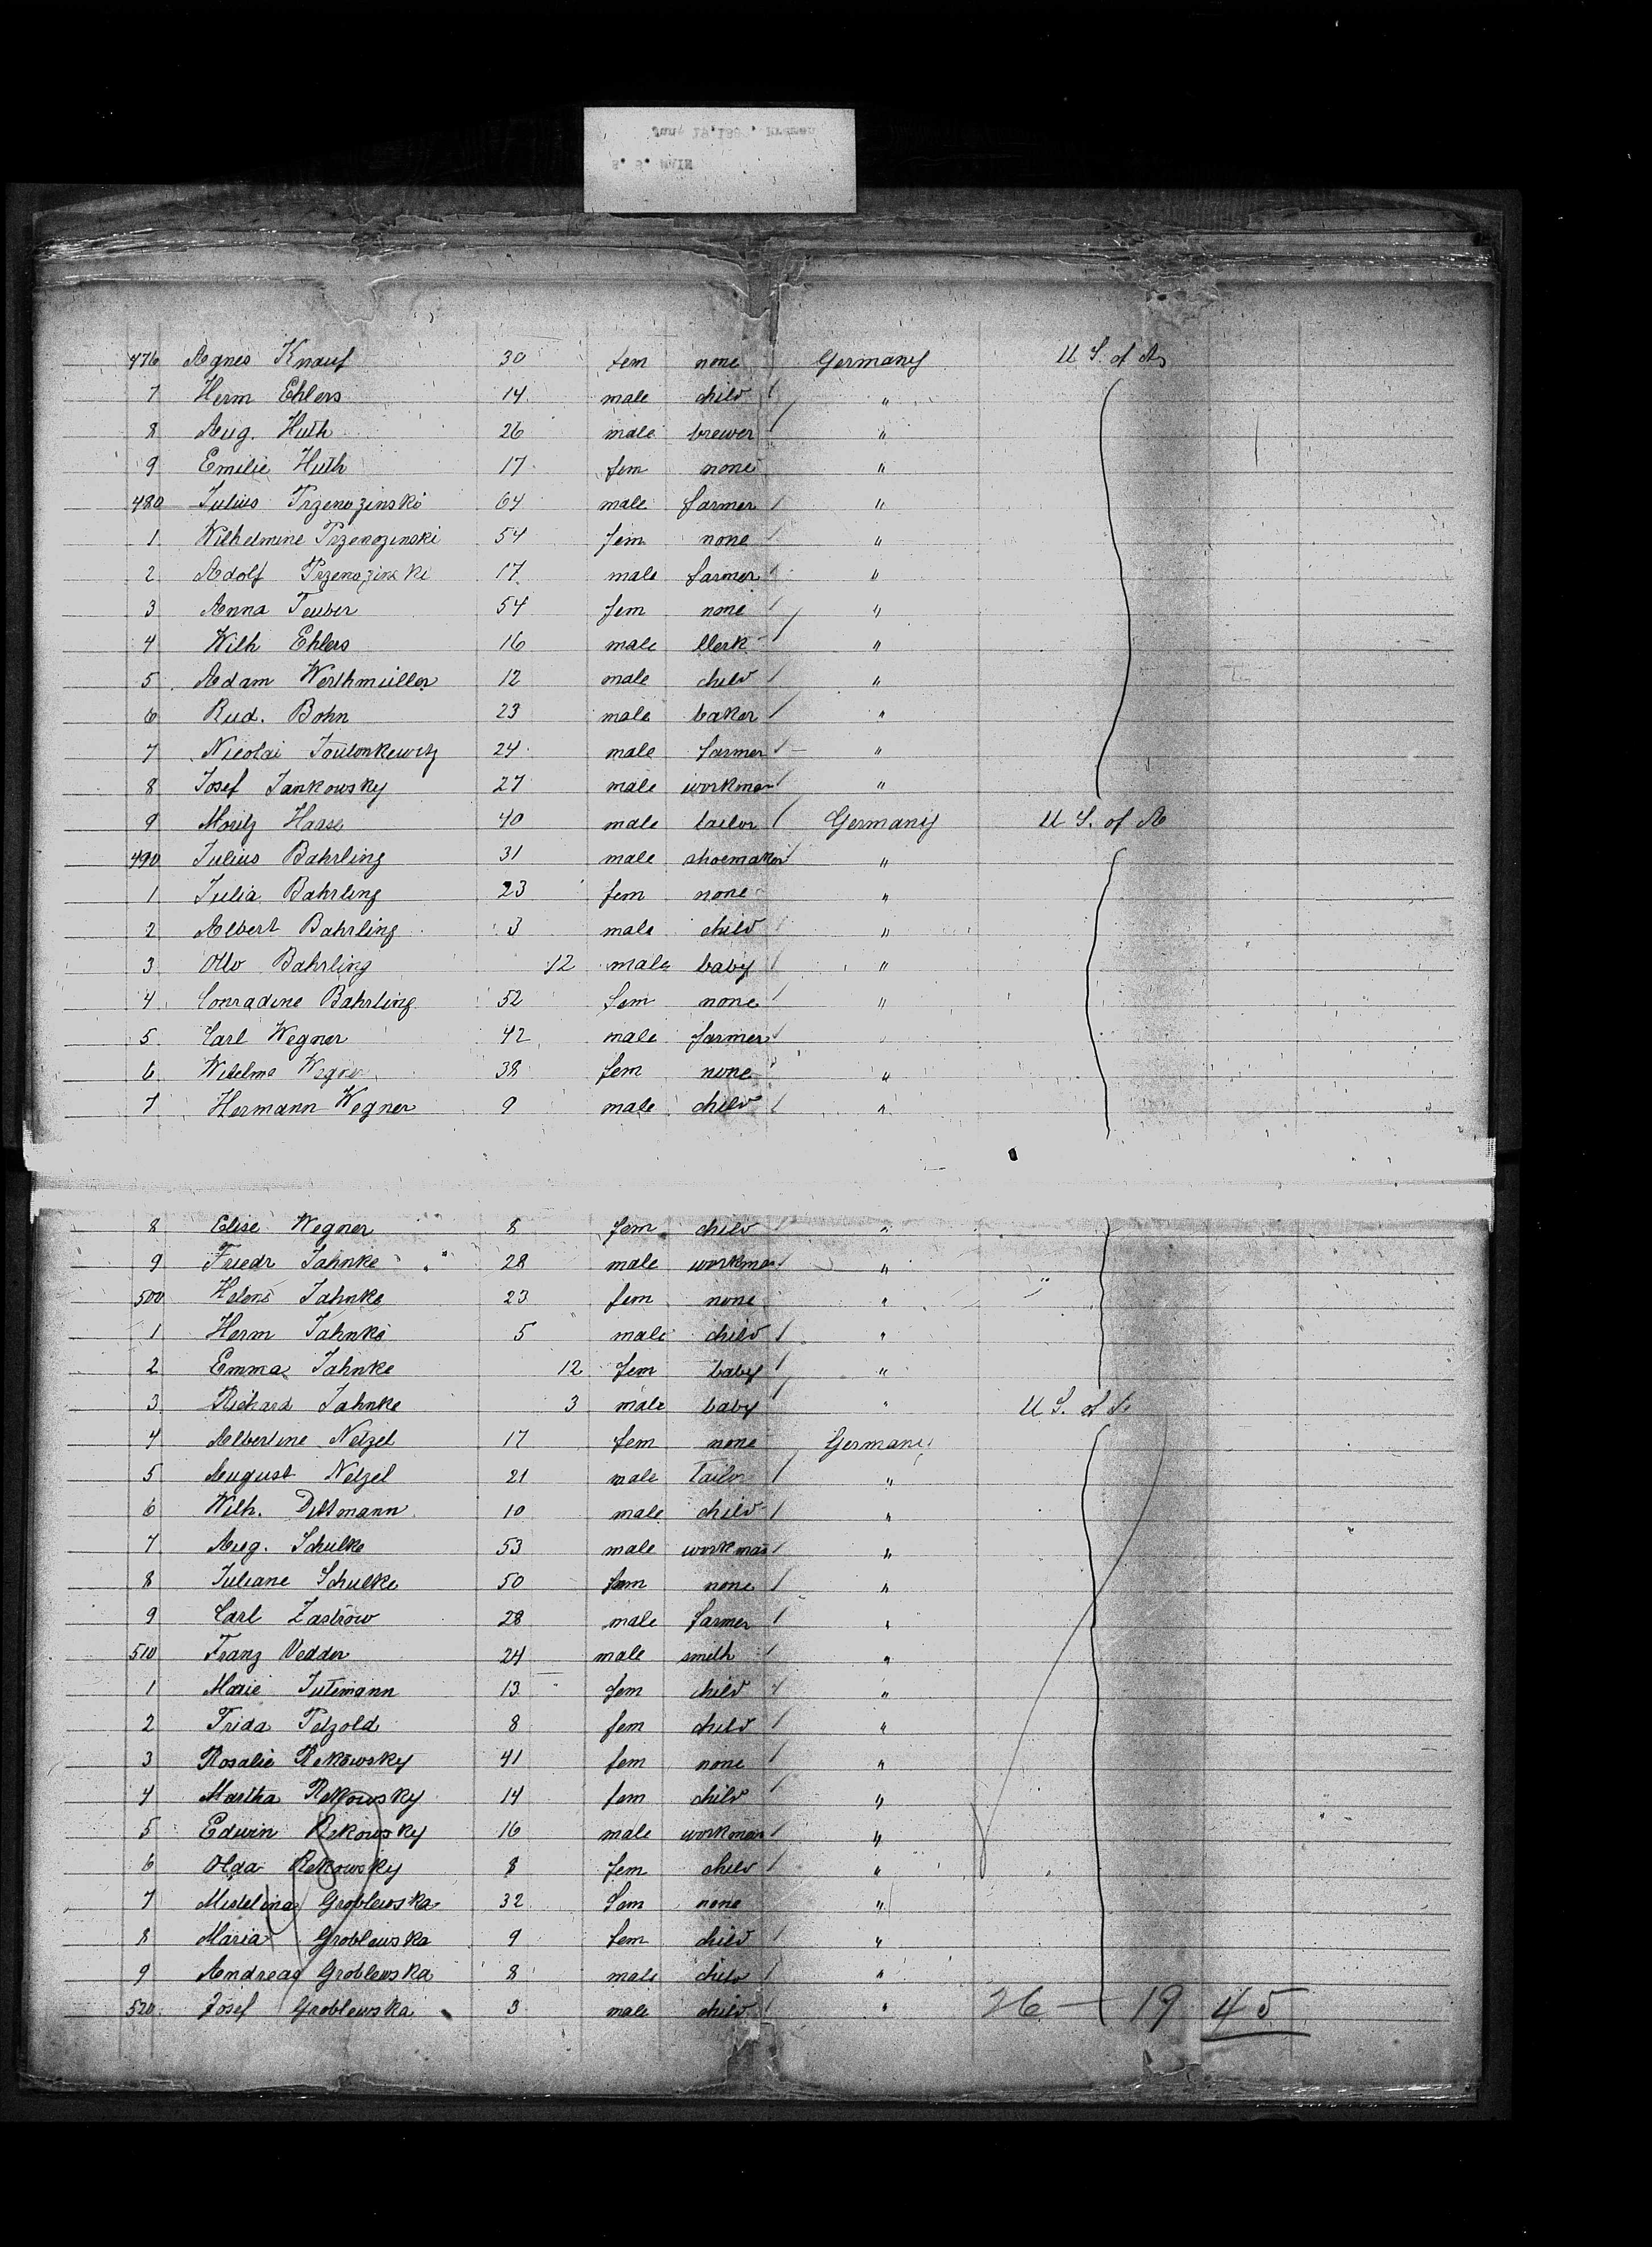 S. S. MAIN
476 Agnes Knauf 30 fem none Germany U S. of A
7 Herm Ehlers 14 male child "
8 Aug. Huth 26 male brewer "
9 Emilie Huth 17 fem none "
480 Julius Przenozinski 64 male farmer "
1 Wilhelmine Przenozinski 54 fem none "
2 Adolf Przenozinski 17 male farmer "
3 Anna Teuber 54 fem none "
4 Wilh Ehlers 16 male Clerk "
5 Adam Werthmüller 12 male child "
6 Rud. Bohn 23 male baker "
7 Nicolai 24 male farmer "
8 Josef Jankowsky 27 male workman "
9 Moritz Haase 40 male tailor Germany U S. of A
490 Julius Bahrling 31 male shoemaker "
1 Julia Bahrling 23 fem none "
2 Albert Bahrling 3 male child "
3 Otto Bahrling 12 male baby "
4 Conradine Bahrling 52 fem none "
5 Carl Wegner 42 male farmer "
6 Wilelma Wegner 38 fem none "
7 Hermann Wegner 9 male child "
8 Elise Wegner 8 fem child "
9 Friedr Jahnke 28 male workman "
500 Helene Jahnke 23 fem none "
1 Herm Jahnke 5 male child "
2 Emma Jahnke 12 fem baby "
3 Richard Jahnke 3 male baby " U S. of A
4 Albertine Netzel 17 fem none Germany
5 August Netzel 21 male Tailor "
6 Wilh. Dittmann 10 male child "
7 Aug. Schulke 53 male workman "
8 Juliane Schulke 50 fem none "
9 Carl Zastrow 28 male farmer "
510 Franz Vedder 24 male smith "
1 Marie Jutemann 13 fem child "
2 Frida Petzold 8 fem child "
3 Rosalie Rekowsky 41 fem none "
4 Martha Rekowsky 14 fem child "
5 Edwin Rekowsky 16 male workman "
6 Olga Rekowsky 8 fem child "
7 Groblewska 32 fem none "
8 Maria Groblewska 9 fem child "
9 Andreas Groblewska 8 male child "
520 Josef Groblewska 3 male child " 26 — 19 45